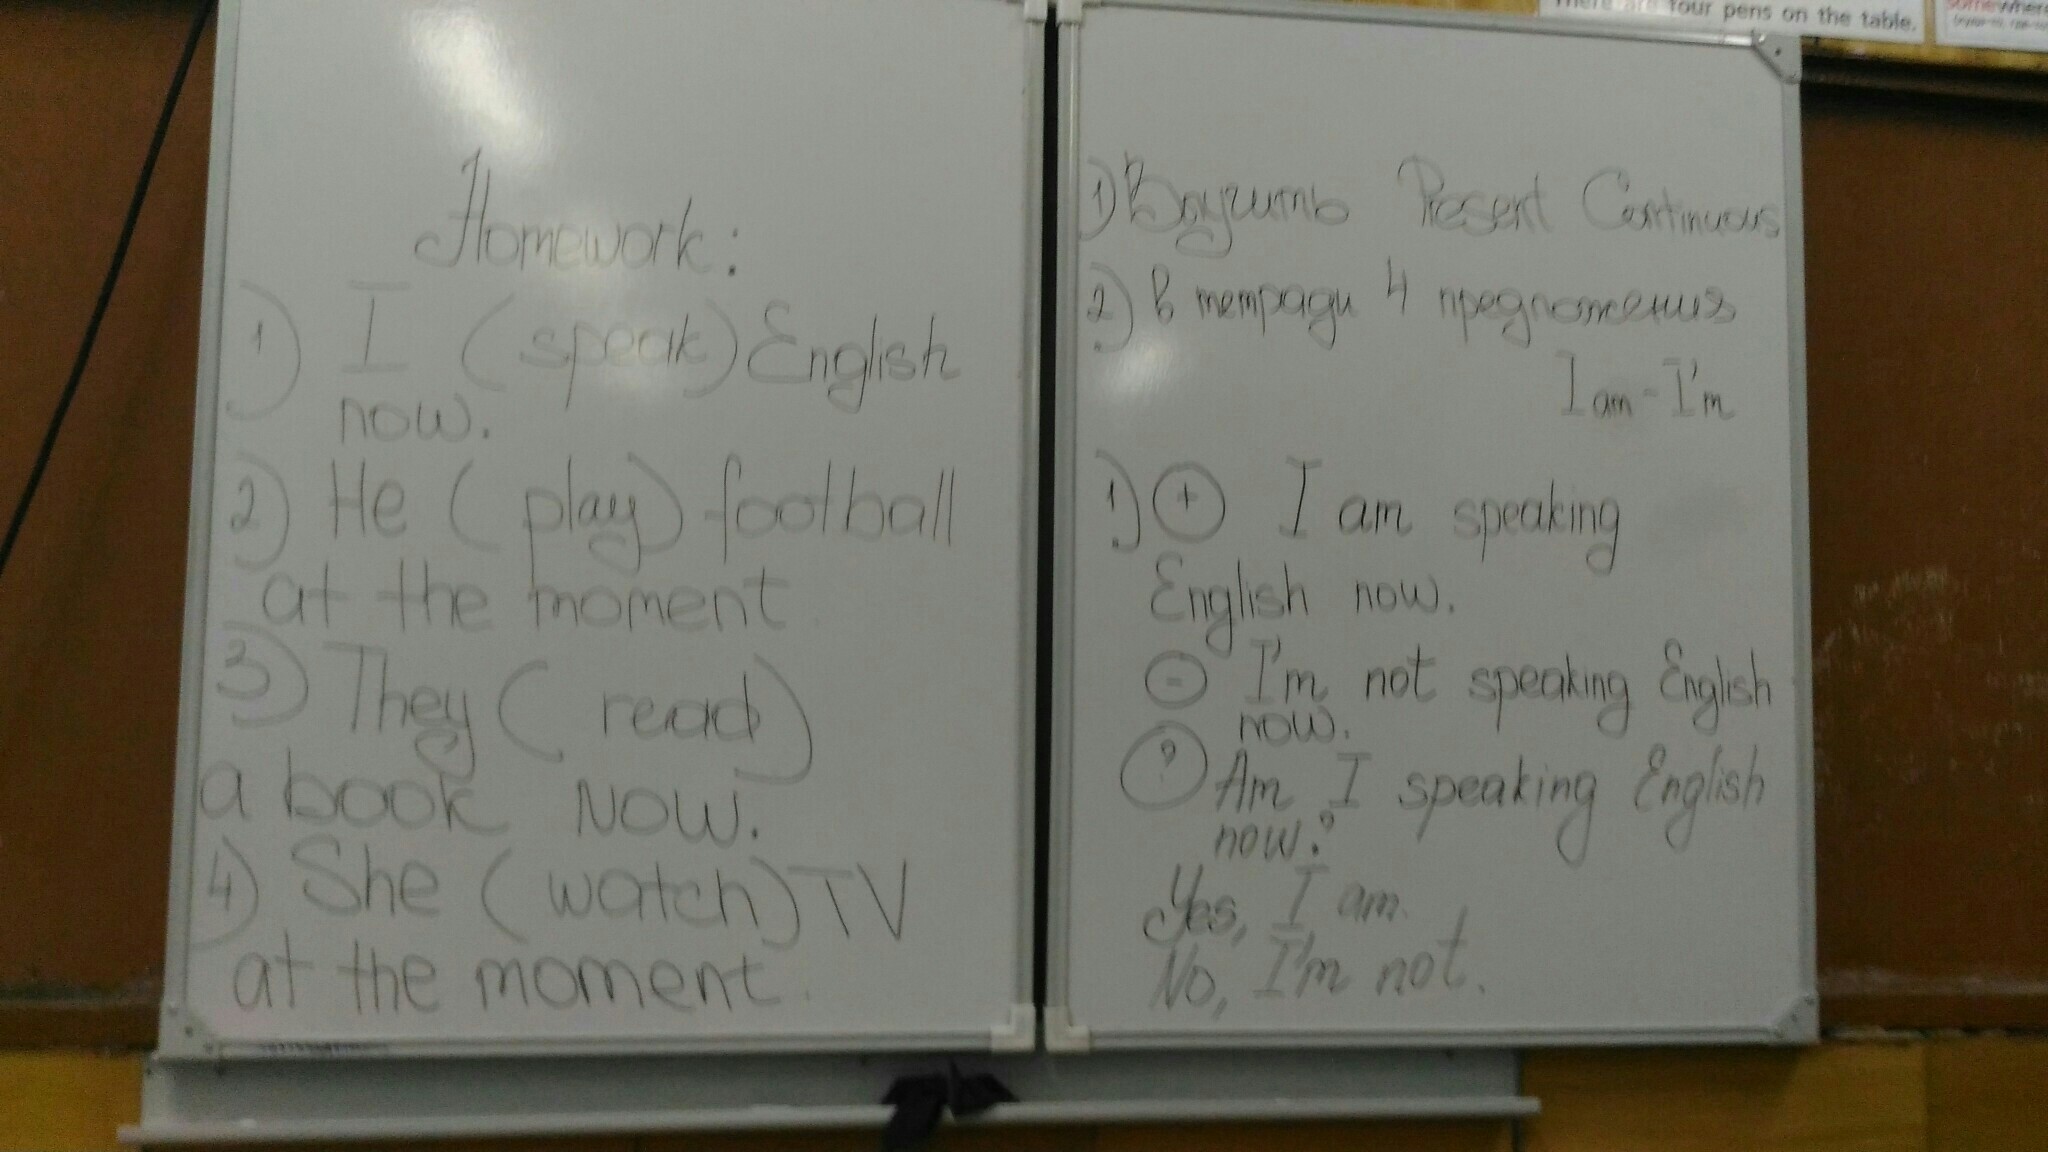 There are four pens on the table.
somewhere
Homework:
1) I (speak) English
now.
2) He (play) football
at the moment.
3) They (read)
a book now.
4) She (watch) TV
at the moment.
1) Выучить Present Continuous
2) в тетради 4 предложения
I am - I'm
1) + I am speaking
English now.
- I'm not speaking English
now.
? Am I speaking English
now?
Yes, I am.
No, I'm not.